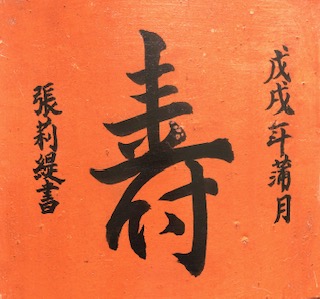 戊戌年蒲月
壽
張莉緹書